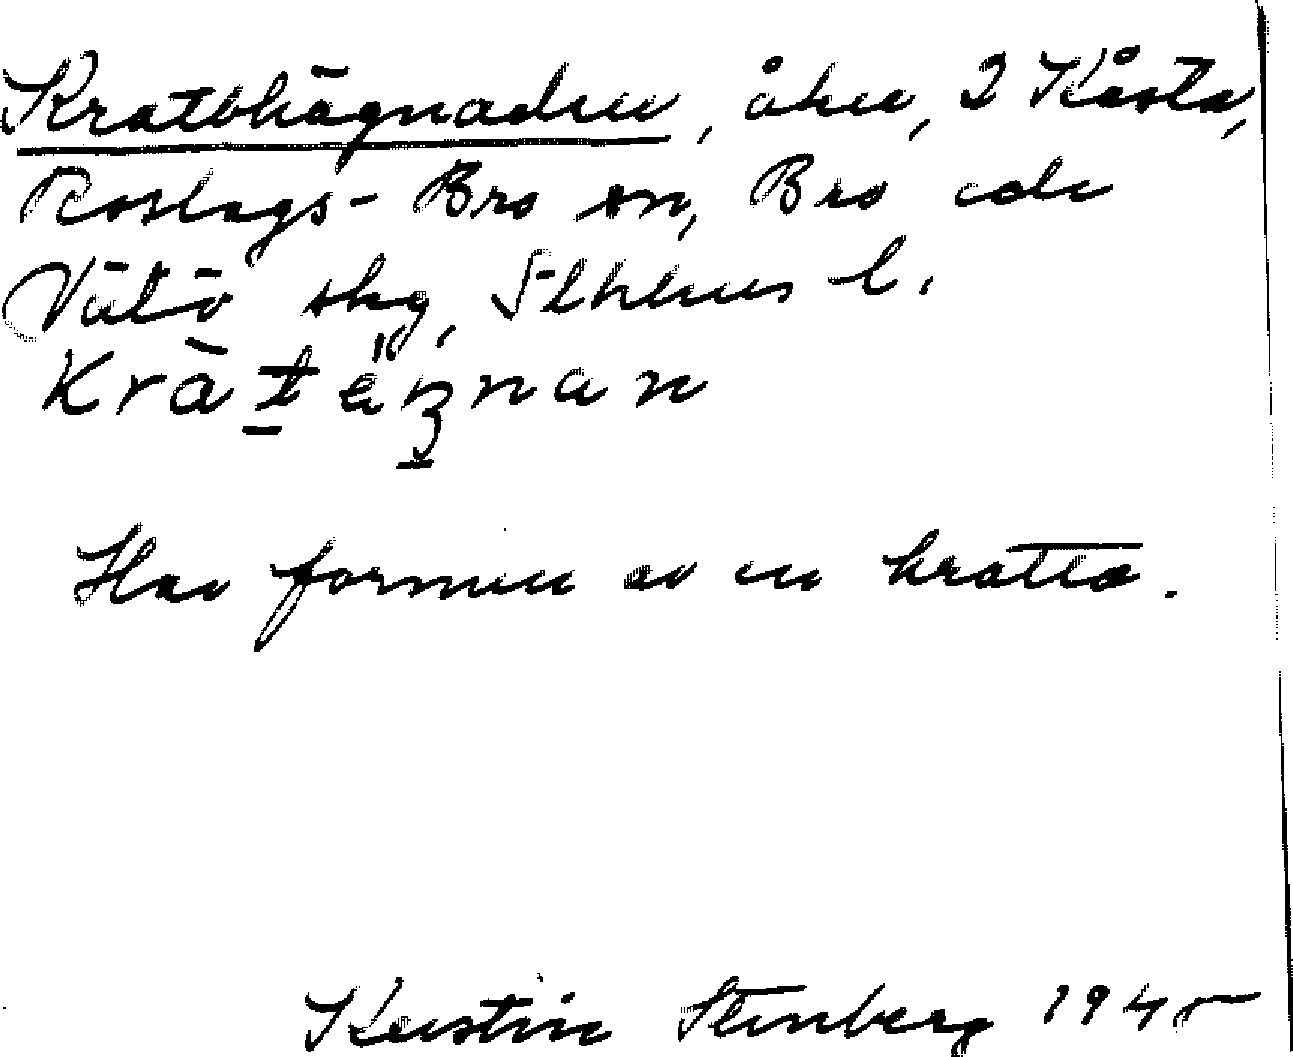 Kratthägnaden, åker, 2 Kåsta,
Roslags-Bro sn, Bro och
Vätö skg, Sthlms l.
Kràtä̀gnan
Har formen av en kratta.
Kerstin Stenberg 1945